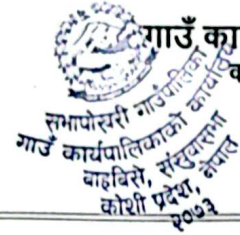 गाउँ का
सभापोखरी गाउँपालिका
गाउँ कार्यपालिकाको कार्यालय
बाहबिसे, संखुवासभा
कोशी प्रदेश, नेपाल
२०७३